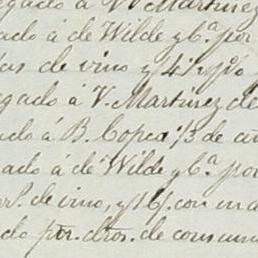 egado á V. Martinez
ado á de Wilde y Cª por
as de vino y 4
egado á V. Martinez de
ado á B. Copca 1/3 de
ado á de Wilde y Cª por
de vino, y 16 con
do por dros. de consum